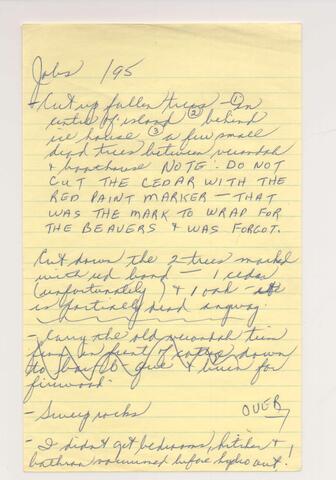 Jobs /95
- Cut up fallen trees - ① In
centre of island ② behind
ice house ③ a few small
dead trees between verandah
& boathouse NOTE: DO NOT
CUT THE CEDAR WITH THE
RED PAINT MARKER - THAT
WAS THE MARK TO WRAP FOR
THE BEAVERS & WAS FORGOT.
Cut down the 2 trees marked
with red band - 1 cedar
(unfortunately) & 1 oak -
is partially dead anyway.
- Carry the old verandah
from in front of cottage down
to & burn for
firewood.
- Sweep rocks
OVER
- I didn't get bedrooms, kitchen &
bathroom vacuumed before hydro out!